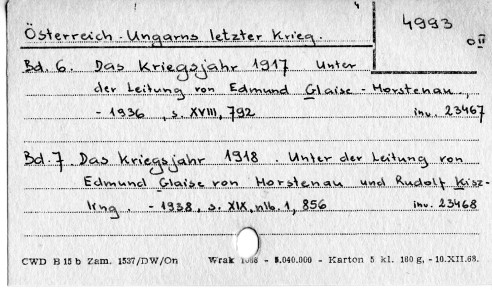 4993
Österreich-Ungarns letzter Krieg.
o II
Bd. 6. Das Kriegsjahr 1917 Unter
der Leitung von Edmund Glaise-Horstenau,
- 1936, s. XVIII, 792 inv. 23467
Bd. 7. Das Kriegsjahr 1918. Unter der Leitung von
Edmund Glaise von Horstenau und Rudolf Kisz-
ling. - 1938, s. XIX, nlb. 1, 856 inv. 23468
CWD B 15 b Zam. 1537/DW/On Wrak 1068 - 5.040.000 - Karton 5 kl. 180 g, - 10.XII.68.